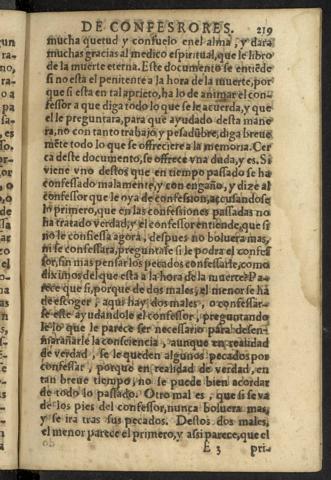 DE CONFESRORES. 219
mucha quetud y consuelo enel alma, y dara
muchas gracias al medico espiritual, que le libro
de la muerte eterna. Este documento se entiẽde
si no està el penitente a la hora de la muerte, por
que si esta en tal aprieto, ha lo de animar el con-
fessor a que diga todo lo que se le acuerda, y que
el le preguntara, para que ayudado desta mane
ra, no con tanto trabajo, y pesadũbre, diga breue
mẽte todo lo que se offreciere a la memoria. Cer
ca deste documento, se offrece vna duda, y es. Si
viene vno destos que en tiempo passado se ha
confessado malamente, y con engaño, y dize al
confessor que le oya de confession, accusandose
lo primero, que en las confessiones passadas no
ha tratado verdad, y el confessor entiende, que si
no le confiessa agora, despues no boluera mas,
ni se confessara, preguntase si le podra el confes
sor, sin mas pensar los pecados confessarle, como
diximos del que esta a la hora de la muerte? Pa-
rece que si, porque de dos males, el menor se hà
de escoger, aqui hay dos males, o confessar-
se este ayudandole el confessor, preguntando
le lo que le parece ser necessario para desen-
marañarle la consciencia, aunque en realidad
de verdad, se le queden algunos pecados por
confessar, porque en realidad de verdad, en
tan breue tiempo, no se puede bien acordar
de todo lo passado. Otro mal es, que si se va
de los pies del confessor, nunca boluera mas,
y se ira tras sus pecados. Destos dos males,
el menor parece el primero, y assi parece, que el
E 3 pri-